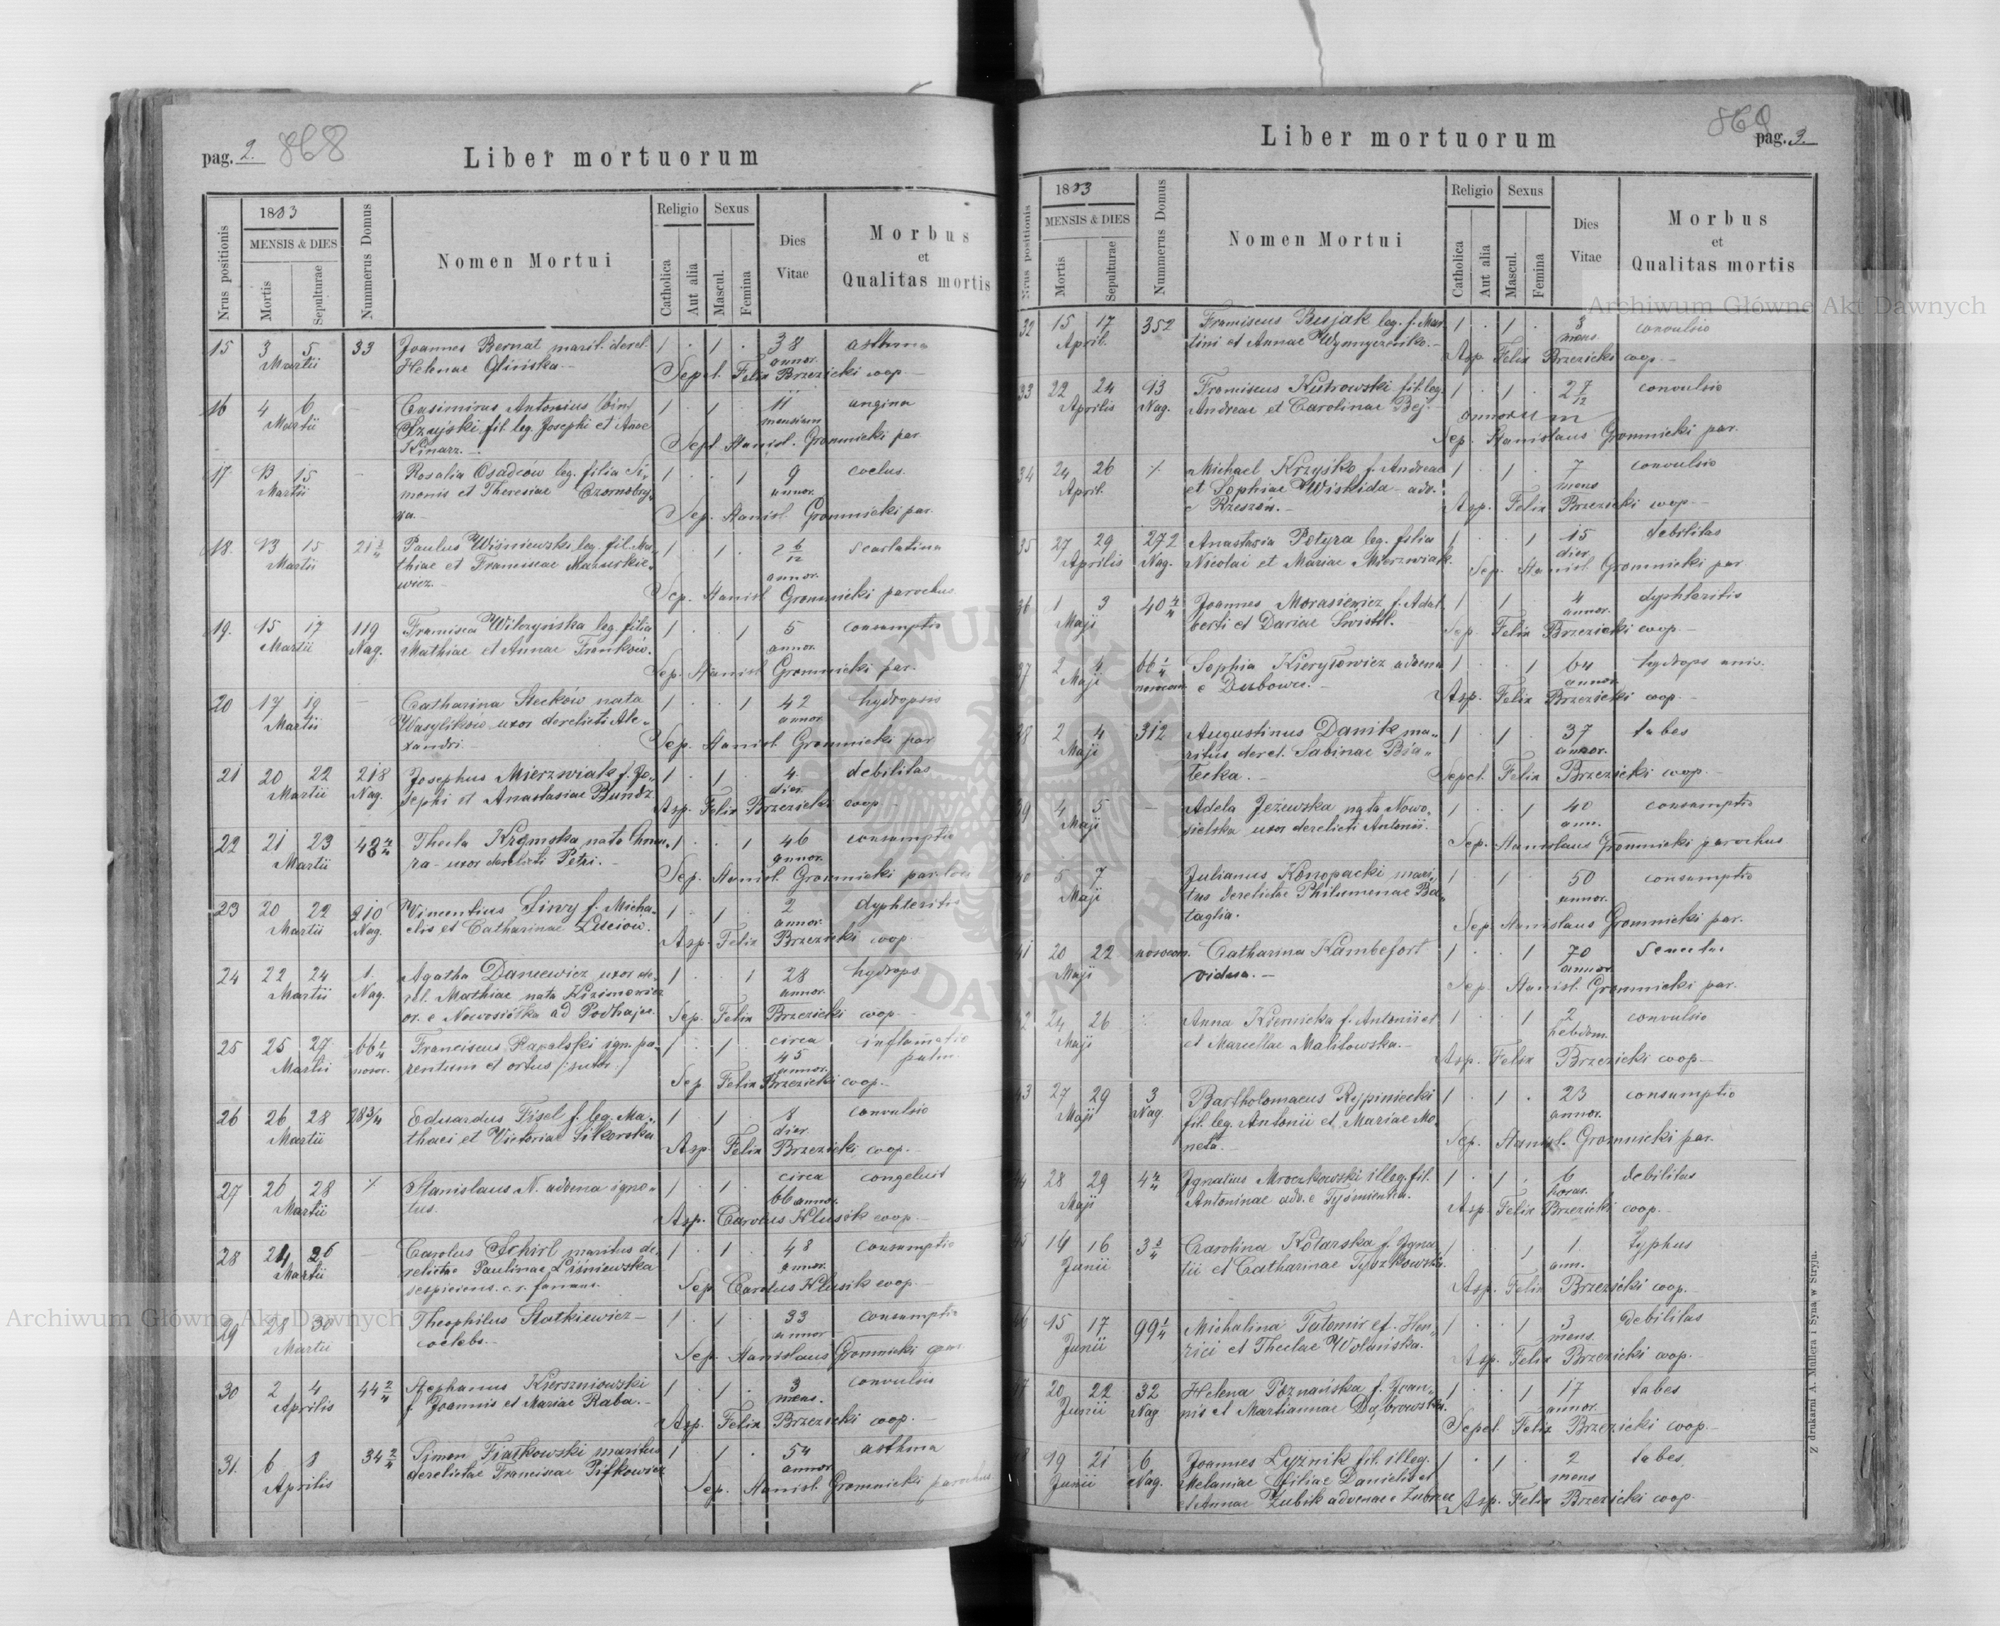 pag. 2. 868
Liber mortuorum
Nrus positionis
1883
MENSIS & DIES
Mortis
Sepulturae
Nummerus Domus
Nomen Mortui
Religio
Catholica
Aut alia
Sexus
Mascul.
Femina
Dies
Vitae
Morbus
et
Qualitas mortis
15 3 5 33 Joannes Bernat marit. derel. 1 . 1 . 38 asthma
Martii Helenae Glińska annor.
Sepel. Felix Brzezicki coop.
16 4 6 – Casimirus Antonius (bin) 1 . 1 . 11 angina
Martii Szujski fil. leg. Josephi et Annae mensium
Kinarz. Sept. Stanisl. Gromnicki par.
17 13 15 – Rosalia Osadców leg. filia Si- 1 . . 1 9
Martii monis et Theresiae annor.
Sep. Stanisl. Gromnicki par.
18. 13 15 Paulus Wiśniewski leg. fil. Ma- 1 . 1 . 2 6/12 scarlatina
Martii thiae et Franciscae Mazurkie- annor.
wicz. Sep. Stanisl. Gromnicki parochus
19. 15 17 119 Francisca Wilczyńska leg. filia 1 . . 1 5 consumptio
Martii Nag. Mathiae et Annae Franków. annor.
Sep. Stanisl. Gromnicki par.
20 17 19 – Catharina Stecków nata 1 . . 1 42 hydropsis
Martii Wasylików uxor derelicti Ale- annor.
xandri. Sep. Stanisl. Gromnicki par.
21 20 22 218 Josephus Mierzwiak f. Jo- 1 . 1 . 4 debilitas
Martii Nag. sephi et Anastasiae Bundz. dier.
Asp. Felix Brzezicki coop.
22 21 23 Thecla Krzymska nata 1 . . 1 46 consumptio
Martii ra uxor derelicti Petri. annor.
Sep. Stanisl. Gromnicki
23 20 22 210 Vincentius Siwy f. Micha- 1 . 1 . 2 dyphteritis
Martii Nag. elis et Catharinae annor.
Asp. Felix Brzezicki coop.
24 22 24 1 Agatha Daniewicz uxor de- 1 . . 1 28 hydrops
Martii Nag. rel. Mathiae nata annor.
or. e Nowosiółka ad Podhajce. Sep. Felix Brzezicki coop.
25 25 27 66 1/4 Franciscus Rapalski ign. pa- 1 . 1 . circa inflamatio
Martii rentum et ortus /sutor./ 45 pulm.
annor.
Sep. Felix Brzezicki coop.
26 26 28 283/4 Eduardus Fisel f. leg. Ma- 1 . 1 . 8 convulsio
Martii thaei et Victoriae Sikorska dier.
Asp. Felix Brzezicki coop.
27 26 28 Stanislaus N. advena igno- 1 . 1 . circa congeluit
Martii tus. 66 annor.
Asp. Carolus Hlusik coop.
28 24 26 – Carolus Schirl maritus de- 1 . 1 . 48 consumptio
Martii relictae Paulinae Liśniewska annor.
Sep. Carolus Hlusik coop.
29 28 30 Theophilus Statkiewicz 1 . 1 . 33 consumptio
Martii coelebs. annor
Sep. Stanislaus Gromnicki par.
30 2 4 44 2/4 Stephanus Kierszniowski 1 . 1 . 3 convulsio
Aprilis f. Joannis et Mariae Raba. mens.
Asp. Felix Brzezicki coop.
31. 6 8 34 2/4 Simon Fiałkowski maritus 1 . 1 . 54 asthma
Aprilis derelictae Franciscae Pifkowicz annor
Sep. Stanisl. Gromnicki parochus
869 pag. 3.
Liber mortuorum
Nrus positionis
1883
MENSIS & DIES
Mortis
Sepulturae
Nummerus Domus
Nomen Mortui
Religio
Catholica
Aut alia
Sexus
Mascul.
Femina
Dies
Vitae
Morbus
et
Qualitas mortis
32 15 17 352 Franciscus Besjak leg. f. Mar- 1 . 1 . 3 convulsio
April. tini et Annae mens.
Asp. Felix Brzezicki coop.
33 22 24 93 Franciscus Kutrowski fil. leg. 1 . 1 . 2 7/12 convulsio
Aprilis Nag. Andreae et Carolinae Bej. annorum
Sep. Stanislaus Gromnicki par.
34 24 26 Michael Krzyśko f. Andreae 1 . 1 . 7 convulsio
April. et Sophiae Wishida adv. mens
e Rzeszów. Asp. Felix Brzezicki coop.
35 27 29 272 Anastasia Petyra leg. filia 1 . . 1 15 debilitas
Aprilis Nag. Nicolai et Mariae Mierzwiak. dier.
Sep. Stanisl. Gromnicki par
36 1 3 Joannes Morasiewicz f. Adal- 1 . 1 4 dyphteritis
Maji berti et Dariae annor.
Sep. Felix Brzezicki coop.
37 2 4 66 1/4 Sophia Kieryłowicz advena 1 . . 1 64 hydrops univ.
Maji nosocom. e Dubowce. annor.
Asp. Felix Brzezicki coop.
38 2 4 312 Augustinus Danik ma- 1 . 1 . 37 tabes
Maji ritus derel. Sabinae Bia- annor.
łecka. Sepel. Felix Brzezicki coop.
39 4 5 – Adela Jeżewska nata Nowo- 1 . . 1 40 consumptio
Maji sielska uxor derelicti Antonii. ann.
Sep. Stanislaus Gromnicki parochus
40 5 7 Julianus Konopacki mari- 1 . 1 . 50 consumptio
Maji tus derelictae Philumenae Ba- annor.
taglia. Sep. Stanislaus Gromnicki par.
41 20 22 nosocom. Catharina Kambefort 1 . . 1 70
Maji vidua. annor.
Sep. Stanisl. Gromnicki par.
42 24 26 Anna Kiernicka f. Antonii et 1 . . 1 2 convulsio
Maji et Marcellae Malitowska. hebdom.
Asp. Felix Brzezicki coop.
43 27 29 3 Bartholomaeus Rypiniecki 1 . 1 . 23 consumptio
Maji Nag. fil. leg. Antonii et Mariae Mo- annor.
neta. Sep. Stanisl. Gromnicki par.
44 28 29 Ignatius Mroczkowski illeg. fil. 1 . 1 . 6 debilitas
Maji Antoninae adv. e Tyśmienica. horas.
Asp. Felix Brzezicki coop.
45 14 16 3 3/4 Carolina Kotarska f. Igna- 1 . . 1 1 typhus
Junii tii et Catharinae ann.
Asp. Felix Brzezicki coop.
46 15 17 99 1/4 Michalina Tatomir f. Hen- 1 . . 1 3 debilitas
Junii rici et Theclae Wolańska. mens.
Asp. Felix Brzezicki coop.
47 20 22 32 Helena Poznańska f. Joan- 1 . . 1 17 tabes
Junii Nag nis et Mariannae Dąbrowska. annor.
Sepel. Felix Brzezicki coop.
48 19 21 6 Joannes Lyznik fil. illeg. 1 . 1 . 2 tabes.
Junii Nag. Melaniae filiae Danielis et mens
et Annae Zubik advenae e Asp. Felix Brzezicki coop.
Z drukarni A. Müllera i Syna w Stryju.
Archiwum Główne Akt Dawnych
Archiwum Główne Akt Dawnych
ARCHIWUM GŁÓWNE AKT DAWNYCH